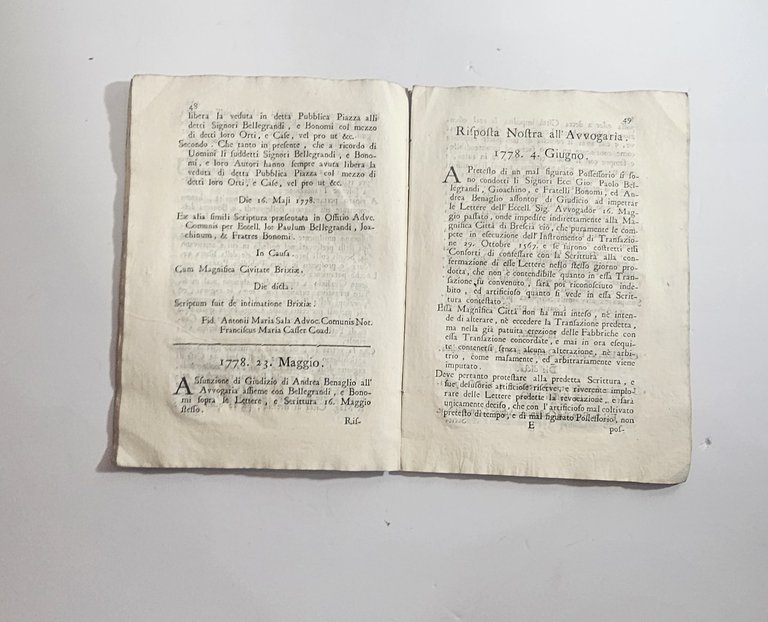 48
libera la veduta in detta Pubblica Piazza alli
detti Signori Bellegrandi, e Bonomi col mezzo
di detti loro Orti, e Case, vel pro ut &c.
Secondo. Che tanto in presente, che a ricordo di
Uomini li suddetti Signori Bellegrandi, e Bono-
mi, e loro Autori hanno sempre avuta libera la
veduta di detta Pubblica Piazza col mezzo di
detti loro Orti, e Case, vel pro ut &c.
Die 16. Maji 1778.
Ex alia simili Scriptura præsentata in Offitio Advc.
Comunis per Eccell. Jo: Paulum Bellegrandi, Joa-
chinum, & Fratres Bonomi.
In Causa.
Cum Magnifica Civitate Brixiæ.
Die dicta.
Scriptum fuit de intimatione Brixiæ.
Fid. Antonii Maria Sala Advoc. Comunis Not.
Franciscus Maria Casser Coad.
1778. 23. Maggio.
Assunzione di Giudizio di Andrea Benaglio all'
Avvogaria assieme con Bellegrandi, e Bono-
mi sopra le Lettere, e Scrittura 16. Maggio
stesso.
Ris-
49
Risposta Nostra all'Avvogaria.
1778. 4. Giugno.
A Pretesto di un mal figurato Possessorio si so-
no condotti li Signori Ecc: Gio: Paolo Bel-
legrandi, Gioachino, e Fratelli Bonomi, ed An-
drea Benaglio assontor di Giudicio ad impetrar
le Lettere dell'Eccell. Sig. Avvogador 16. Mag-
gio passato, onde impedire indirettamente alla Ma-
gnifica Città di Brescia ciò, che puramente le com-
pete in esecuzione dell'Instromento di Transazio-
ne 29. Ottobre 1567. e se furono costretti essi
Consorti di confessare con la Scrittura alla con-
fermazione di esse Lettere nello stesso giorno pro-
dotta, che non è contendibile quanto in essa Tran-
sazione fu convenuto, sarà poi riconosciuto inde-
bito, ed artificioso quanto si vede in essa Scrit-
tura contestato.
Essa Magnifica Città non ha mai inteso, nè inten-
de di alterare, nè eccedere la Transazione predetta,
ma nella già patuita erezione delle Fabbriche con
essa Transazione concordate, e mai in ora esequi-
te contenersi senza alcuna alterazione, nè arbi-
trio, come malamente, ed arbitrariamente viene
imputato.
Deve pertanto protestare alla predetta Scrittura, e
sue delusorie artificiose riserve, e riverente implo-
rare delle Lettere predette la revocazione, e sarà
unicamente deciso, che con l'artificioso mal coltivato
pretesto di tempo, e di mal figurato Possessorio, non
E
pos-